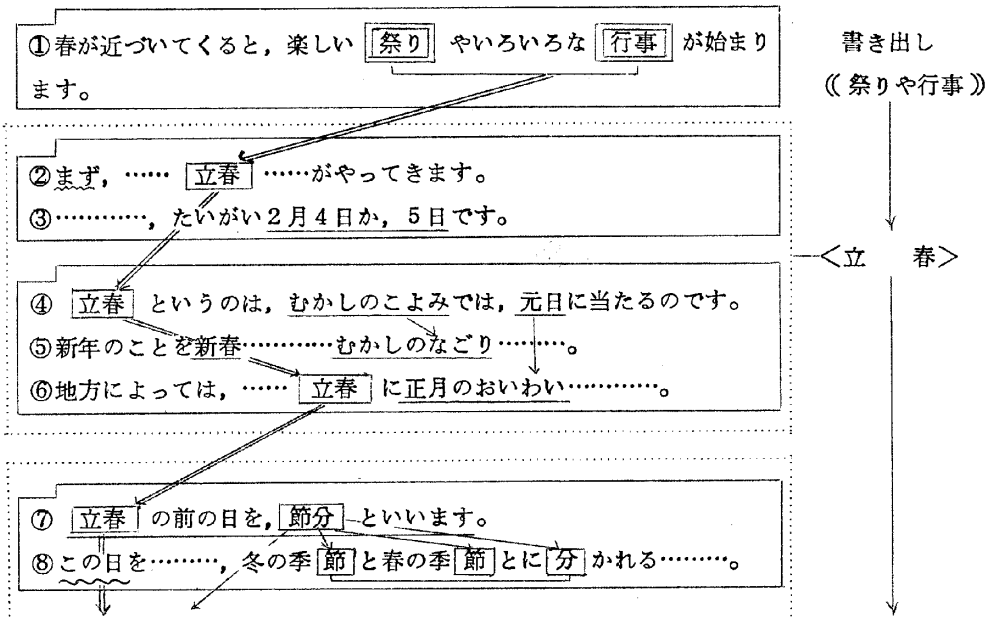 ①春が近づいてくると，楽しい 祭り やいろいろな 行事 が始まり
ます。
書き出し
《 祭りや行事 》
②まず，…… 立春 ……がやってきます。
③…………，たいがい2月4日か，5日です。
＜立　春＞
④ 立春 というのは，むかしのこよみでは，元日に当たるのです。
⑤新年のことを新春…………むかしのなごり………。
⑥地方によっては，…… 立春 に正月のおいわい…………。
⑦ 立春 の前の日を，節分 といいます。
⑧この日を………，冬の季 節 と春の季 節 とに 分 かれる………。